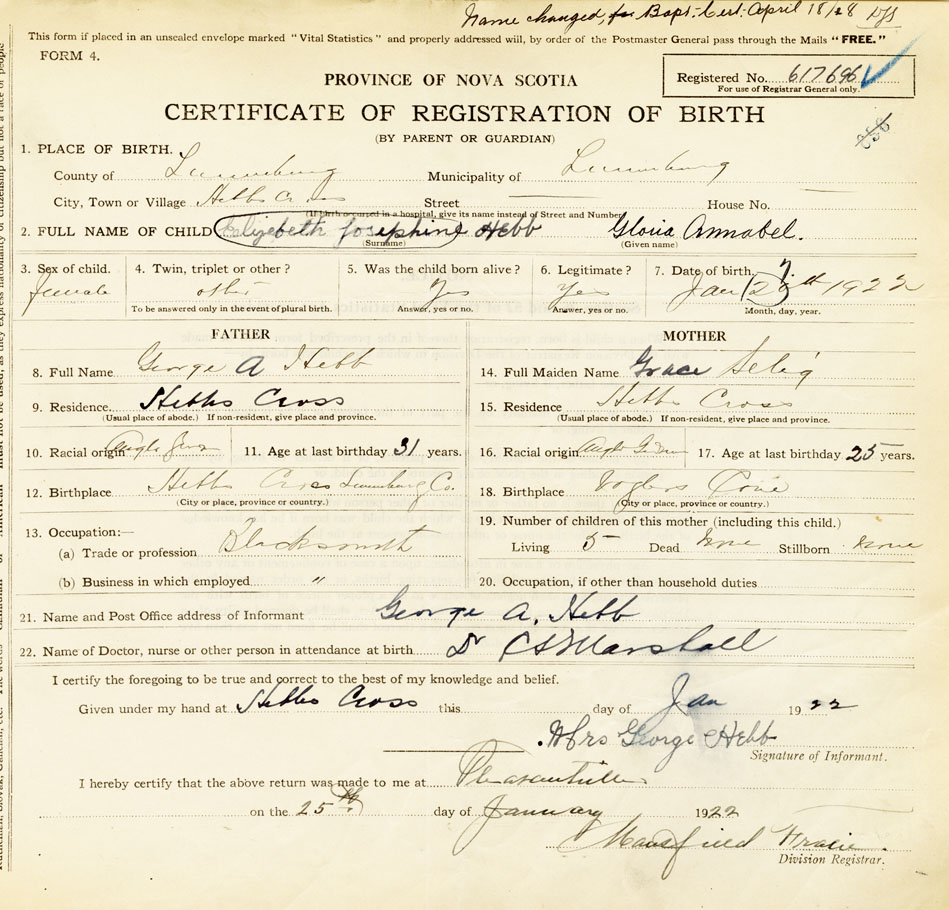 Name changed, per Bapt. Cert. April 18/28
This form if placed in an unsealed envelope marked "Vital Statistics" and properly addressed will, by order of the Postmaster General pass through the Mails "FREE."
FORM 4.
PROVINCE OF NOVA SCOTIA
Registered No. 617696
For use of Registrar General only.
CERTIFICATE OF REGISTRATION OF BIRTH
(BY PARENT OR GUARDIAN)
1. PLACE OF BIRTH.
County of Lunenburg Municipality of Lunenburg
City, Town or Village Hebbs Cross Street House No.
(If birth occurred in a hospital, give its name instead of Street and Number)
2. FULL NAME OF CHILD Elizebeth Josephine Hebb Gloria Annabel.
(Surname) (Given name)
3. Sex of child. 4. Twin, triplet or other? 5. Was the child born alive? 6. Legitimate? 7. Date of birth.
female other Yes Yes Jan 1922
To be answered only in the event of plural birth. Answer, yes or no. Answer, yes or no. Month, day, year.
FATHER MOTHER
8. Full Name George A Hebb 14. Full Maiden Name Grace Selig
9. Residence Hebbs Cross 15. Residence Hebbs Cross
(Usual place of abode.) If non-resident, give place and province. (Usual place of abode.) If non-resident, give place and province.
10. Racial origin 11. Age at last birthday 31 years. 16. Racial origin 17. Age at last birthday 25 years.
12. Birthplace Hebbs Cross Lunenburg Co. 18. Birthplace Voglers Cove
(City or place, province or country.) (City or place, province or country.)
13. Occupation:— 19. Number of children of this mother (including this child.)
(a) Trade or profession Blacksmith Living 5 Dead None Stillborn none
(b) Business in which employed " 20. Occupation, if other than household duties
21. Name and Post Office address of Informant George A. Hebb
22. Name of Doctor, nurse or other person in attendance at birth Dr Marshall
I certify the foregoing to be true and correct to the best of my knowledge and belief.
Given under my hand at Hebbs Cross this day of Jan 1922
Mrs George Hebb
Signature of Informant.
I hereby certify that the above return was made to me at Pleasantville
on the 25th day of January 1922
Mansfield
Division Registrar.